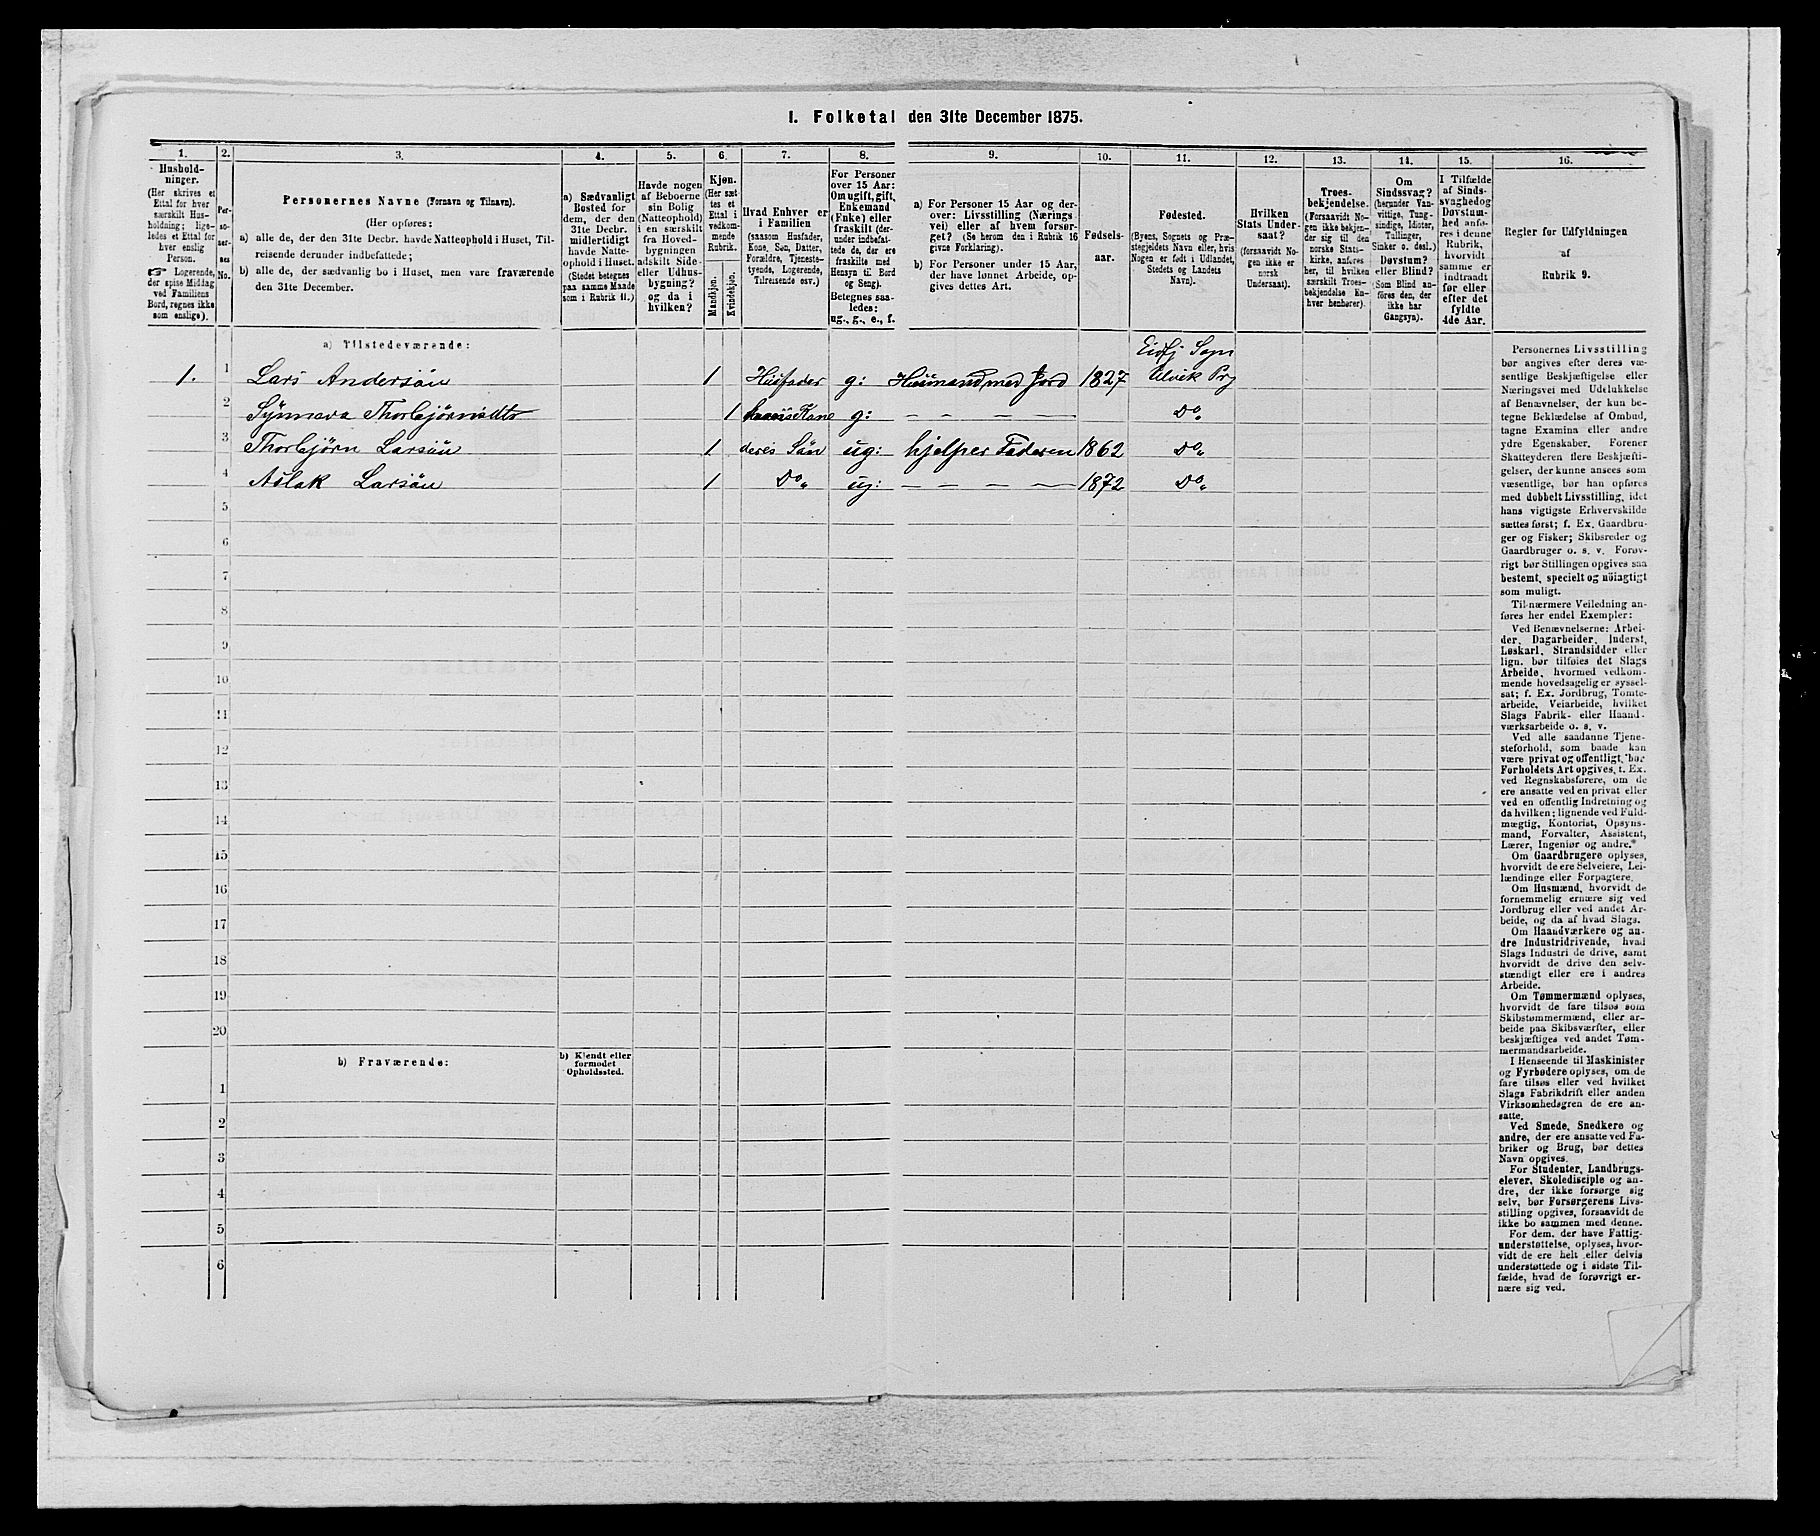 I. Folketal den 31te December 1875.
1.
Hushold-
ninger.
(Her skrives et
Ettal for hver
særskilt Hus-
holdning; lige-
ledes et Ettal for
hver enslig
Person.
☞ Logerende,
der spise Middag
ved Familiens
Bord, regnes ikke
som enslige).
2.
Per-
so-
ner-
nes
No.
3.
Personernes Navne (Fornavn og Tilnavn).
(Her opføres:
a) alle de, der den 31te Decbr. havde Natteophold i Huset, Til-
reisende derunder indbefattede;
b) alle de, der sædvanlig bo i Huset, men vare fraværende
den 31te December.
4.
a) Sædvanligt
Bosted for
dem, der den
31te Decbr.
midlertidigt
havde Natte-
ophold i Huset.
(Stedet betegnes
paa samme Maade
som i Rubrik 11.)
5.
Havde nogen
af Beboerne
sin Bolig
(Natteophold)
i en særskilt
fra Hoved-
bygningen
adskilt Side-
eller Udhus-
bygning?
og da i
hvilken?
6.
Kjøn.
(Her sæt-
tes et
Ettal i
vedkom-
mende
Rubrik.
Mandkjøn.
Kvindekjøn.
7.
Hvad Enhver er
i Familien
(saasom Husfader,
Kone, Søn, Datter,
Forældre, Tjeneste-
tyende, Logerende,
Tilreisende osv.)
8.
For Personer
over 15 Aar:
Om ugift, gift,
Enkemand
(Enke) eller
fraskilt (der-
under indbefat-
tede de, der ere
fraskilte med
Hensyn til Bord
og Seng).
Betegnes saa-
ledes:
ug., g., e., f.
9.
a) For Personer 15 Aar og der-
over: Livsstilling (Nærings-
vei) eller af hvem forsør-
get? (Se herom den i Rubrik 16
givne Forklaring).
b) For Personer under 15 Aar,
der have lønnet Arbeide, op-
gives dettes Art.
10.
Fødsels-
aar.
11.
Fødested.
(Byens, Sognets og Præ-
stegjeldets Navn eller, hvis
Nogen er født i Udlandet,
Stedets og Landets
Navn).
12.
Hvilken
Stats Under-
saat?
(forsaavidt No-
gen ikke er
norsk
Undersaat).
13.
Troes-
bekjendelse.
(Forsaavidt No-
gen ikke bekjen-
der sig til den
norske Stats-
kirke, anføres
her, til hvilken
særskilt Troes-
bekjendelse En-
hver henhører).
14.
Om
Sindssvag?
(herunder Van-
vittige, Tung-
sindige, Idioter,
Tullinger,
Sinker o. desl.)
Døvstum?
eller Blind?
(Som Blind an-
føres den, der
ikke har
Gangsyn).
15.
I Tilfælde
af Sinds-
svaghed og
Døvstum-
hed anfø-
res i denne
Rubrik,
hvorvidt
samme er
indtraadt
før eller
efter det
fyldte
4de Aar.
16.
Regler for Udfyldningen
af
Rubrik 9.
a) Tilstedeværende:
Eidfj Sogn
1. 1 Lars Andersøn 1 Husfader g: Husmand med Jord 1827 Ulvik Prg
2 Synneva Thorbjørnsdtr 1 hans Kone g: — — — — Do„
3 Thorbjørn Larsøn 1 deres Søn ug: hjelper Faderen 1862 Do„
4 Aslak Larsøn 1 Do„ ug: — — — — 1872 Do„
5
6
7
8
9
10
11
12
13
14
15
16
17
18
19
20
b) Fraværende:
b) Kjendt eller
formodet
Opholdssted.
1
2
3
4
5
6
Personernes Livsstilling
bør angives efter deres væ-
sentlige Beskjæftigelse eller
Næringsvei med Udelukkelse
af Benævnelser, der kun be-
tegne Beklædelse af Ombud,
tagne Examina eller andre
ydre Egenskaber. Forener
Skatteyderen flere Beskjæfti-
gelser, der kunne ansees som
væsentlige, bør han opføres
med dobbelt Livsstilling, idet
hans vigtigste Erhvervskilde
sættes først; f. Ex. Gaardbru-
ger og Fisker; Skibsreder og
Gaardbruger o. s. v. Forøv-
rigt bør Stillingen opgives saa
bestemt, specielt og nöiagtigt
som muligt.
Til nærmere Veiledning an-
føres her endel Exempler:
Ved Benævnelserne: Arbei-
der, Dagarbeider, Inderst,
Løskarl, Strandsidder eller
lign. bør tilføies det Slags
Arbeide, hvormed vedkom-
mende hovedsagelig er syssel-
sat; f. Ex. Jordbrug, Tomte-
arbeide, Veiarbeide, hvilket
Slags Fabrik- eller Haand-
værksarbeide o. s. v.
Ved alle saadanne Tjene-
steforhold, som baade kan
være privat og offentligt, bør
Forholdets Art opgives, t. Ex.
ved Regnskabsførere, om de
ere ansatte ved en privat eller
ved en offentlig Indretning og
da hvilken; lignende ved Fuld-
mægtig, Kontorist, Opsyns-
mand, Forvalter, Assistent,
Lærer, Ingeniør og andre.
Om Gaardbrugere oplyses,
hvorvidt de ere Selveiere, Lei-
lændinge eller Forpagtere.
Om Husmænd, hvorvidt de
fornemmelig ernære sig ved
Jordbrug eller ved andet Ar-
beide, og da af hvad Slags.
Om Haandværkere og an-
dre Industridrivende, hvad
Slags Industri de drive, samt
hvorvidt de drive den selv-
stændigt eller ere i andres
Arbeide.
Om Tømmermænd oplyses,
hvorvidt de fare tilsøs som
Skibstømmermænd, eller ar-
beide paa Skibsværfter, eller
beskjæftiges ved andet Tøm-
mermandsarbeide.
I Henseende til Maskinister
og Fyrbødere oplyses, om de
fare tilsøs eller ved hvilket
Slags Fabrikdrift eller anden
Virksomhedsgren de ere an-
satte.
Ved Smede, Snedkere og
andre, der ere ansatte ved Fa-
briker og Brug, bør dettes
Navn opgives.
For Studenter, Landbrugs-
elever, Skoledisciple og an-
dre, der ikke forsørge sig
selv, bør Forsørgerens Livs-
stilling opgives, forsaavidt de
ikke bo sammen med denne.
For dem, der have Fattig-
understøttelse, oplyses, hvor-
vidt de ere helt eller delvis
understøttede og i sidste Til-
fælde, hvad de forøvrigt er-
nære sig ved.